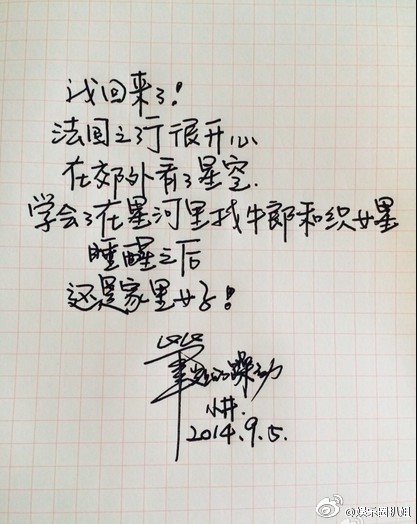 我回来了!
法国之行很开心
在郊外看了星空.
学会了在星河里找牛郎和织女星
睡醒之后
还是家里好!
笔 的躁动
小井.
2014.9.5.